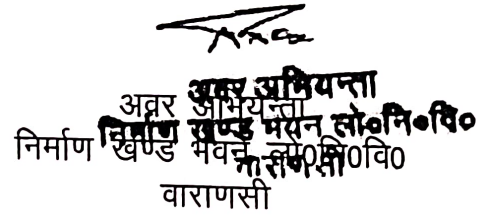 अवर अभियन्ता
निर्माण खण्ड भवन लो०नि०वि०
वाराणसी
अवर अभियन्ता
निर्माण खण्ड भवन लो0नि0वि0
वाराणसी